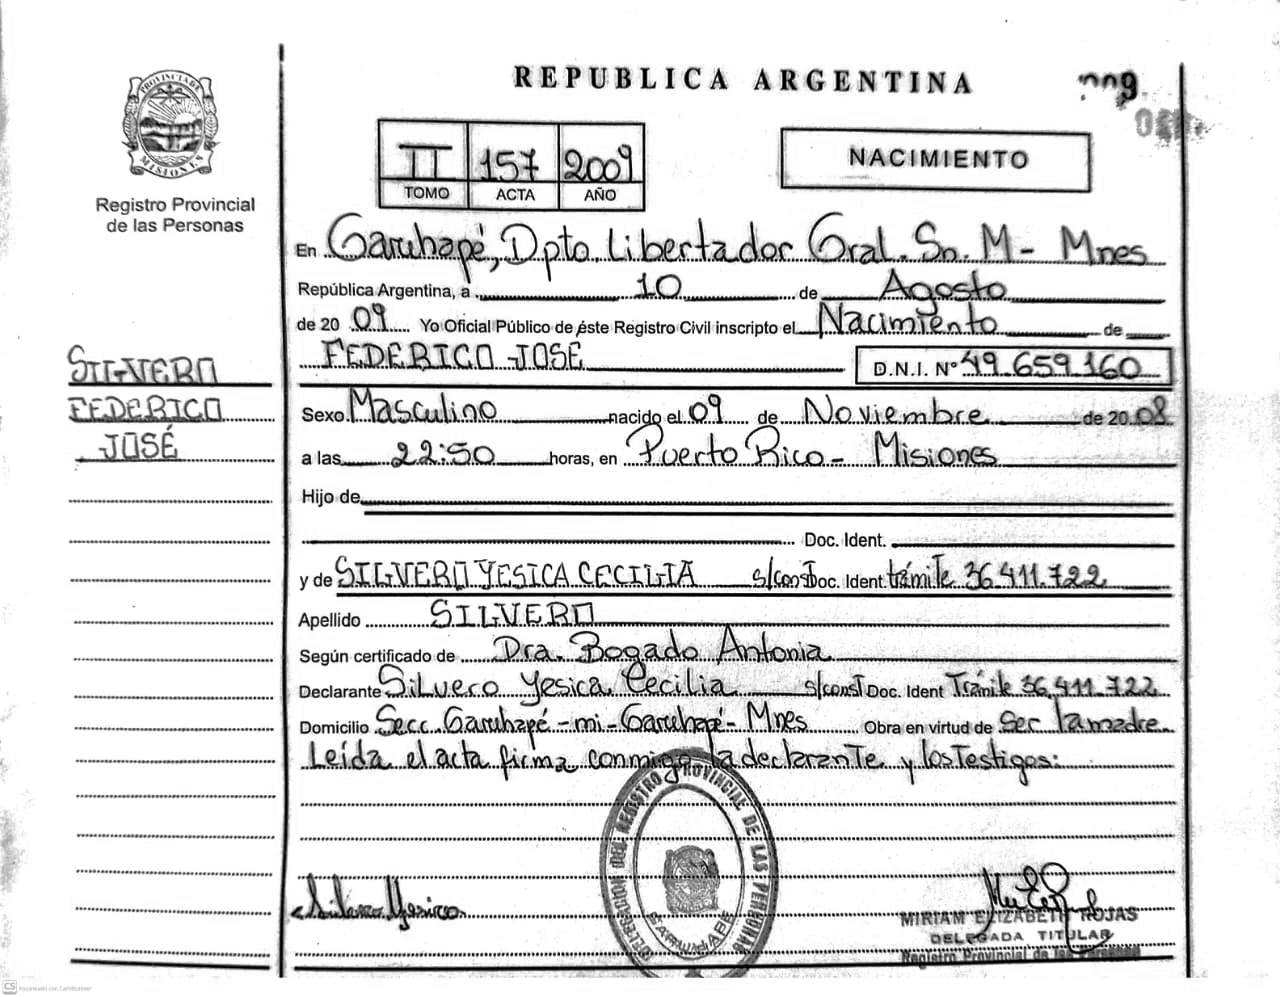 REPUBLICA ARGENTINA
PROVINCIA DE
MISIONES
Registro Provincial
de las Personas
II 157 2009
TOMO ACTA AÑO
NACIMIENTO
En Garuhapé, Dpto. Libertador Gral. Sn. M - Mnes
República Argentina, a 10 de Agosto
de 20 09 Yo Oficial Público de éste Registro Civil inscripto el Nacimiento de
FEDERICO JOSÉ D.N.I. Nº 49.659.160
SILVERO
FEDERICO
JOSÉ
Sexo Masculino nacido el 09 de Noviembre de 20 08
a las 22:50 horas, en Puerto Rico - Misiones
Hijo de
Doc. Ident.
y de SILVERO YESICA CECILIA s/const Doc. Ident. trámite 36.411.722
Apellido SILVERO
Según certificado de Dra. Bogado Antonia
Declarante Silvero Yesica Cecilia s/const Doc. Ident Trámite 36.411.722
Domicilio Secc. Garuhapé-mi-Garuhapé-Mnes Obra en virtud de Ser la madre.
Leída el acta firma conmigo la declarante y los Testigos:
DEL REGISTRO PROVINCIAL DE LAS PERSONAS
Silvero Yesica
MIRIAM ELIZABETH ROJAS
DELEGADA TITULAR
Registro Provincial de las Personas
CS Escaneado con CamScanner